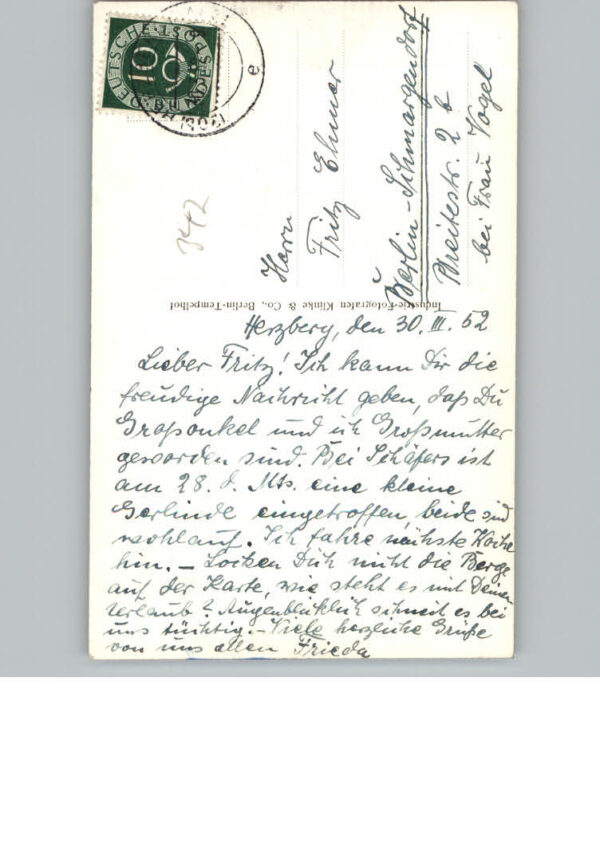 DEUTSCHE BUNDESPOST
10
e
Herrn
Fritz Ehmer
Berlin-Schmargendorf
Breitestr. 2b
bei Frau Vogel
Industrie-Fotografen Klinke & Co., Berlin-Tempelhof
Herzberg, den 30. III. 52
Lieber Fritz! Ich kann Dir die
freudige Nachricht geben, daß Du
Großonkel und ich Großmutter
geworden sind. Bei Schäfers ist
am 28. d. Mts. eine kleine
Gerlinde eingetroffen beide sind
wohlauf. Ich fahre nächste Woche
hin. – Locken Dich nicht die Berge
auf der Karte, wie steht es mit Deinem
Urlaub? Augenblicklich schneit es bei
uns tüchtig. – Viele herzliche Grüße
von uns allen Frieda